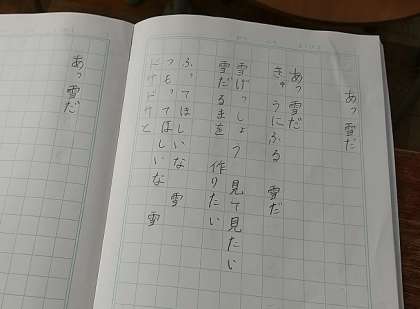 あっ雪だ
あっ雪だ
きゅうにふる 雪だ
雪げっしょう 見て見たい
雪だるまを 作りたい
ふってほしいな 雪
つもってほしいな 雪
ドサドサと
あっ雪だ